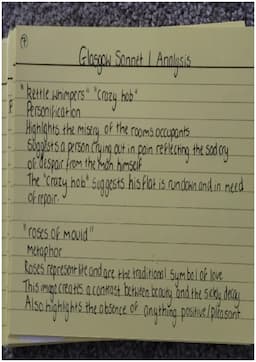 Glasgow Sonnet 1 Analysis
"kettle whimpers" "crazy hob"
Personification
Highlights the misery of the rooms occupants
Suggests a person crying out in pain reflecting the sad cry
of despair from the man himself
The "crazy hob" suggests his flat is rundown and in need
of repair.
"roses of mould"
Metaphor
Roses represent life and are the traditional symbol of love
This image creates a contrast between beauty and the sickly decay
Also highlights the absence of anything positive/pleasant